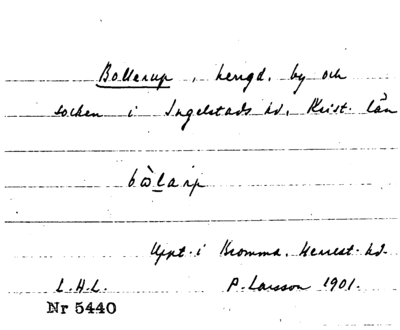 Bollerup, herrgd, by och
socken i Ingelstads hd, Krist. län
bò̄larp
Uppt. i Kromma, Herrest. hd.
L.H.L. P. Larsson 1901.
Nr 5440